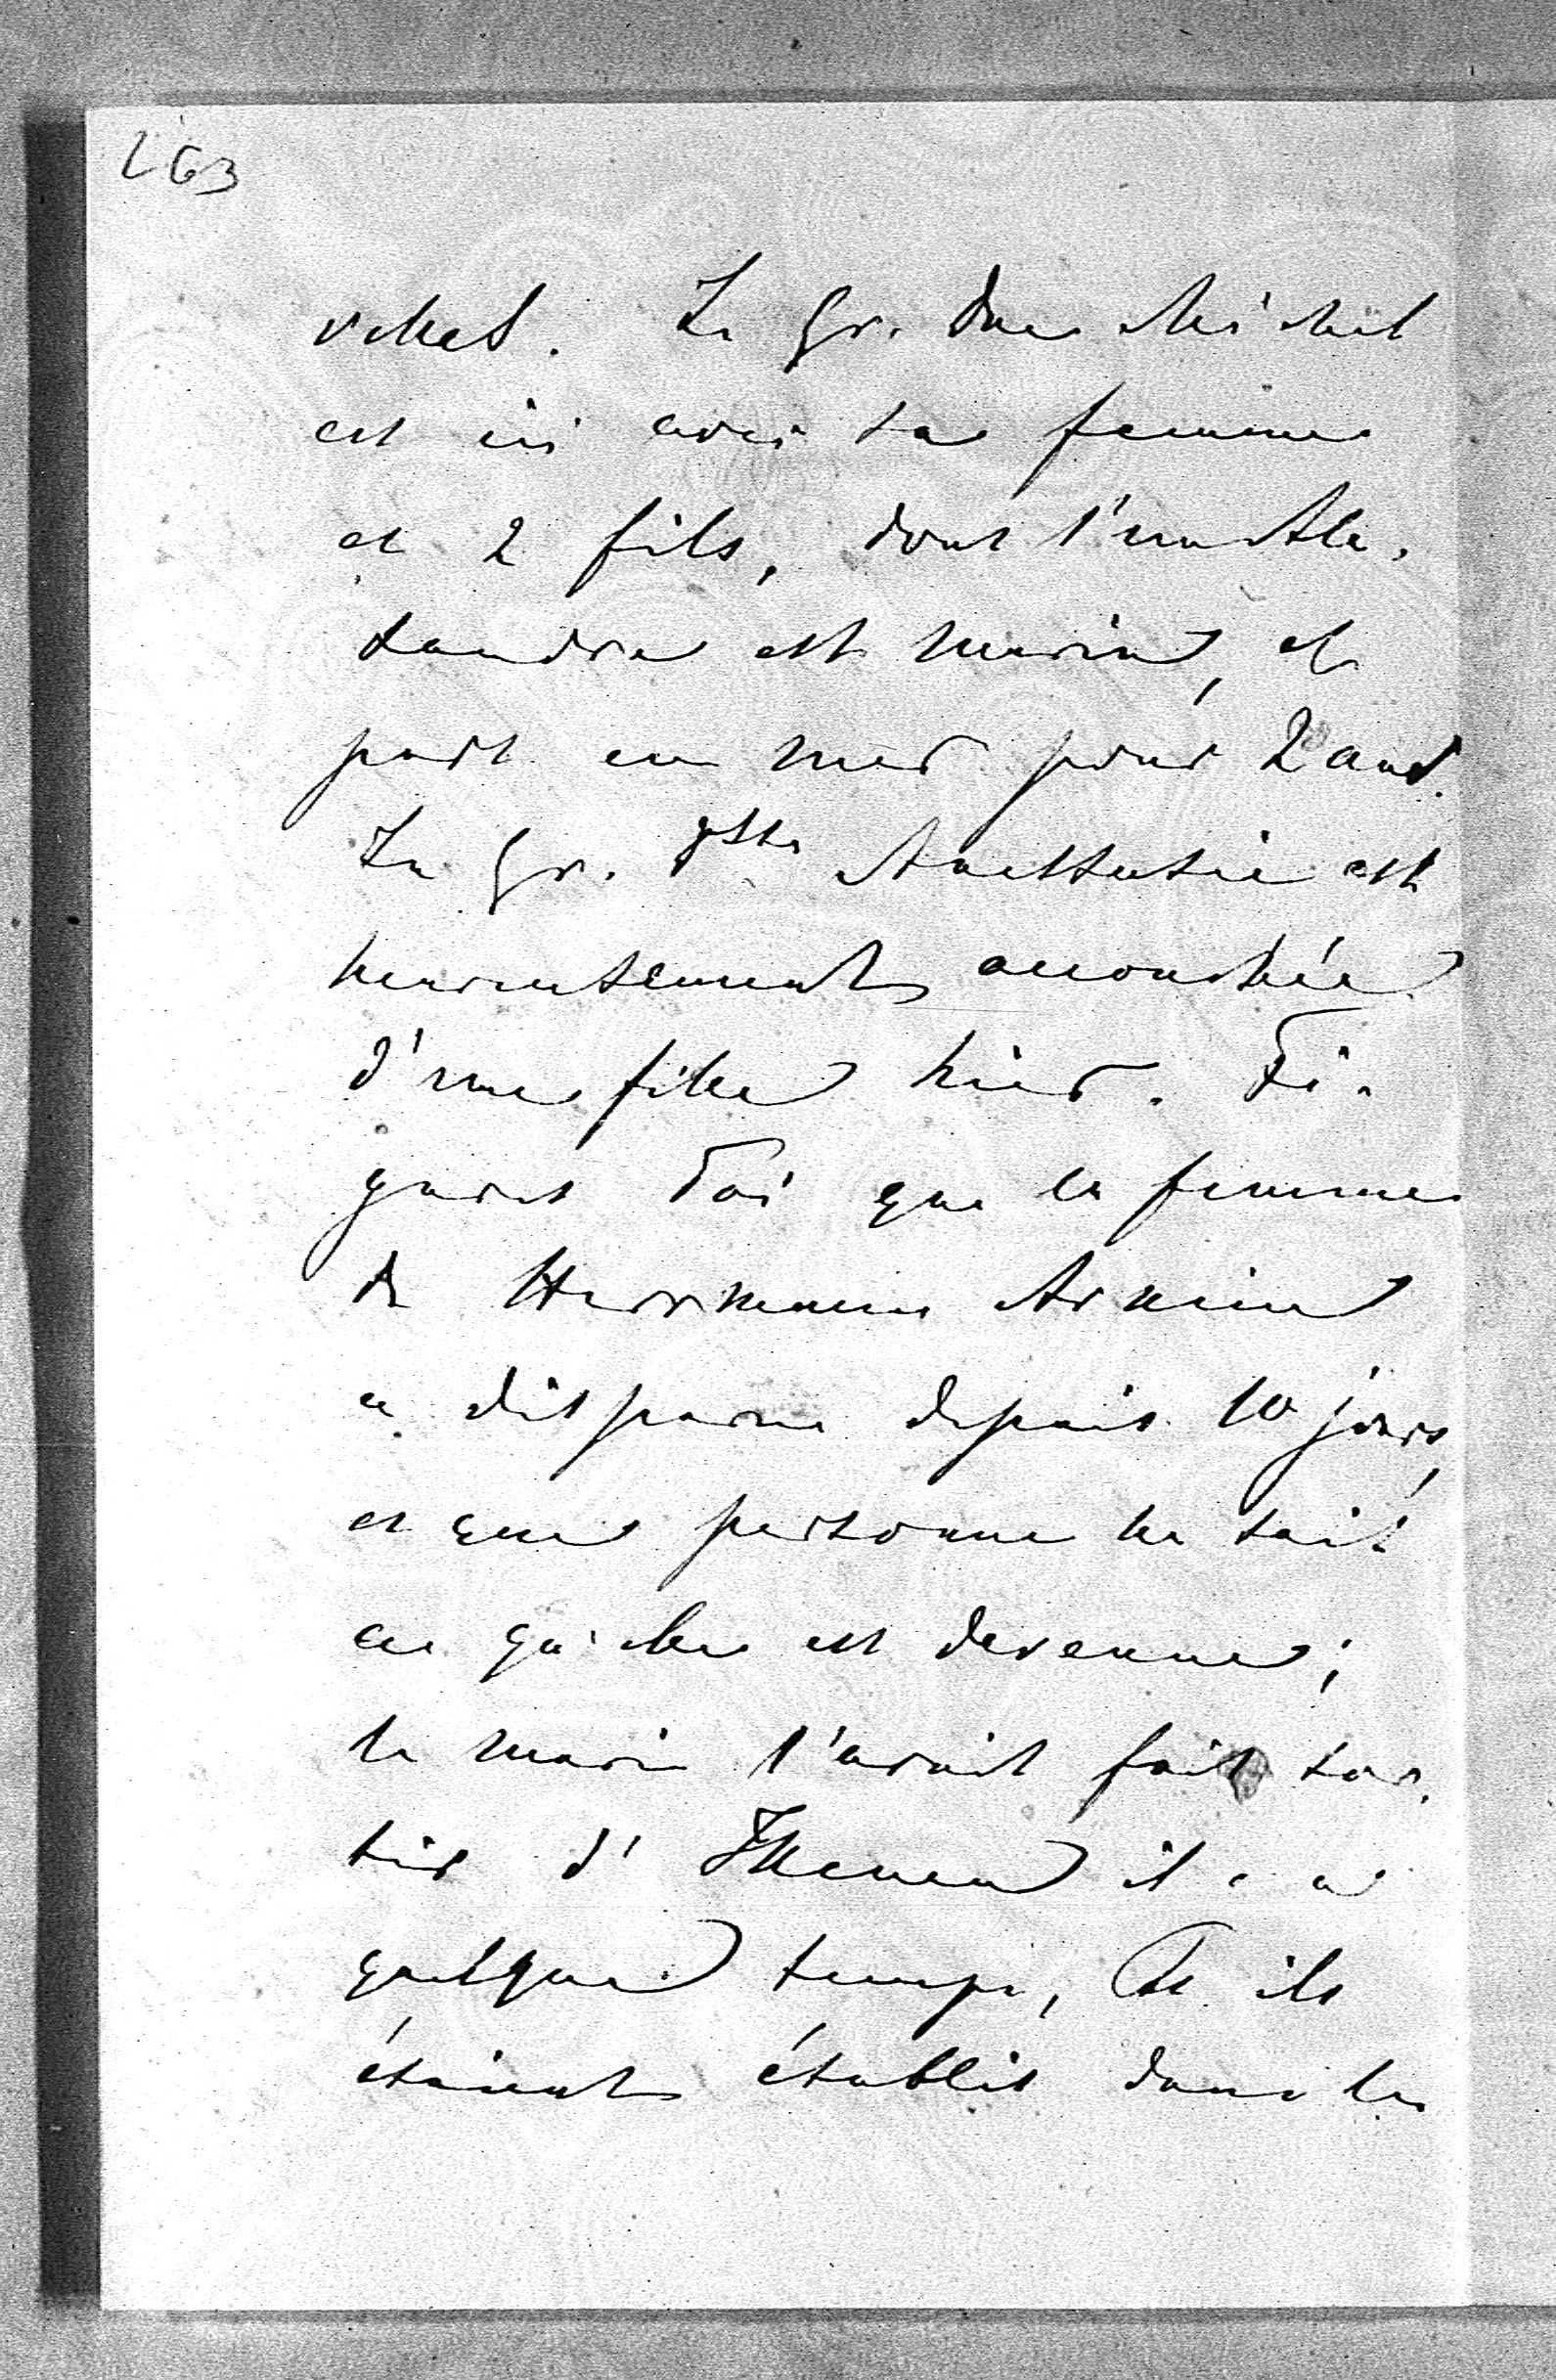 263
velles. Le Gr. Duc Michel
est ici avec sa femme
et 2 fils, dont l'un Ale-
xandre est marin, et
part en mer pour 2 ans.
La Gr. Dsse Anastasie est
heureusement accouchée
d'une fille hier. Fi-
gures Toi que la femme
de Herrmann Arnim
a disparu depuis 10 jours,
et que personne ne sait
ce qu'elle est devenue;
le mari l'avait fait sor-
tir d'Illenau il y a
quelque temps, et ils
étaient établis dans le